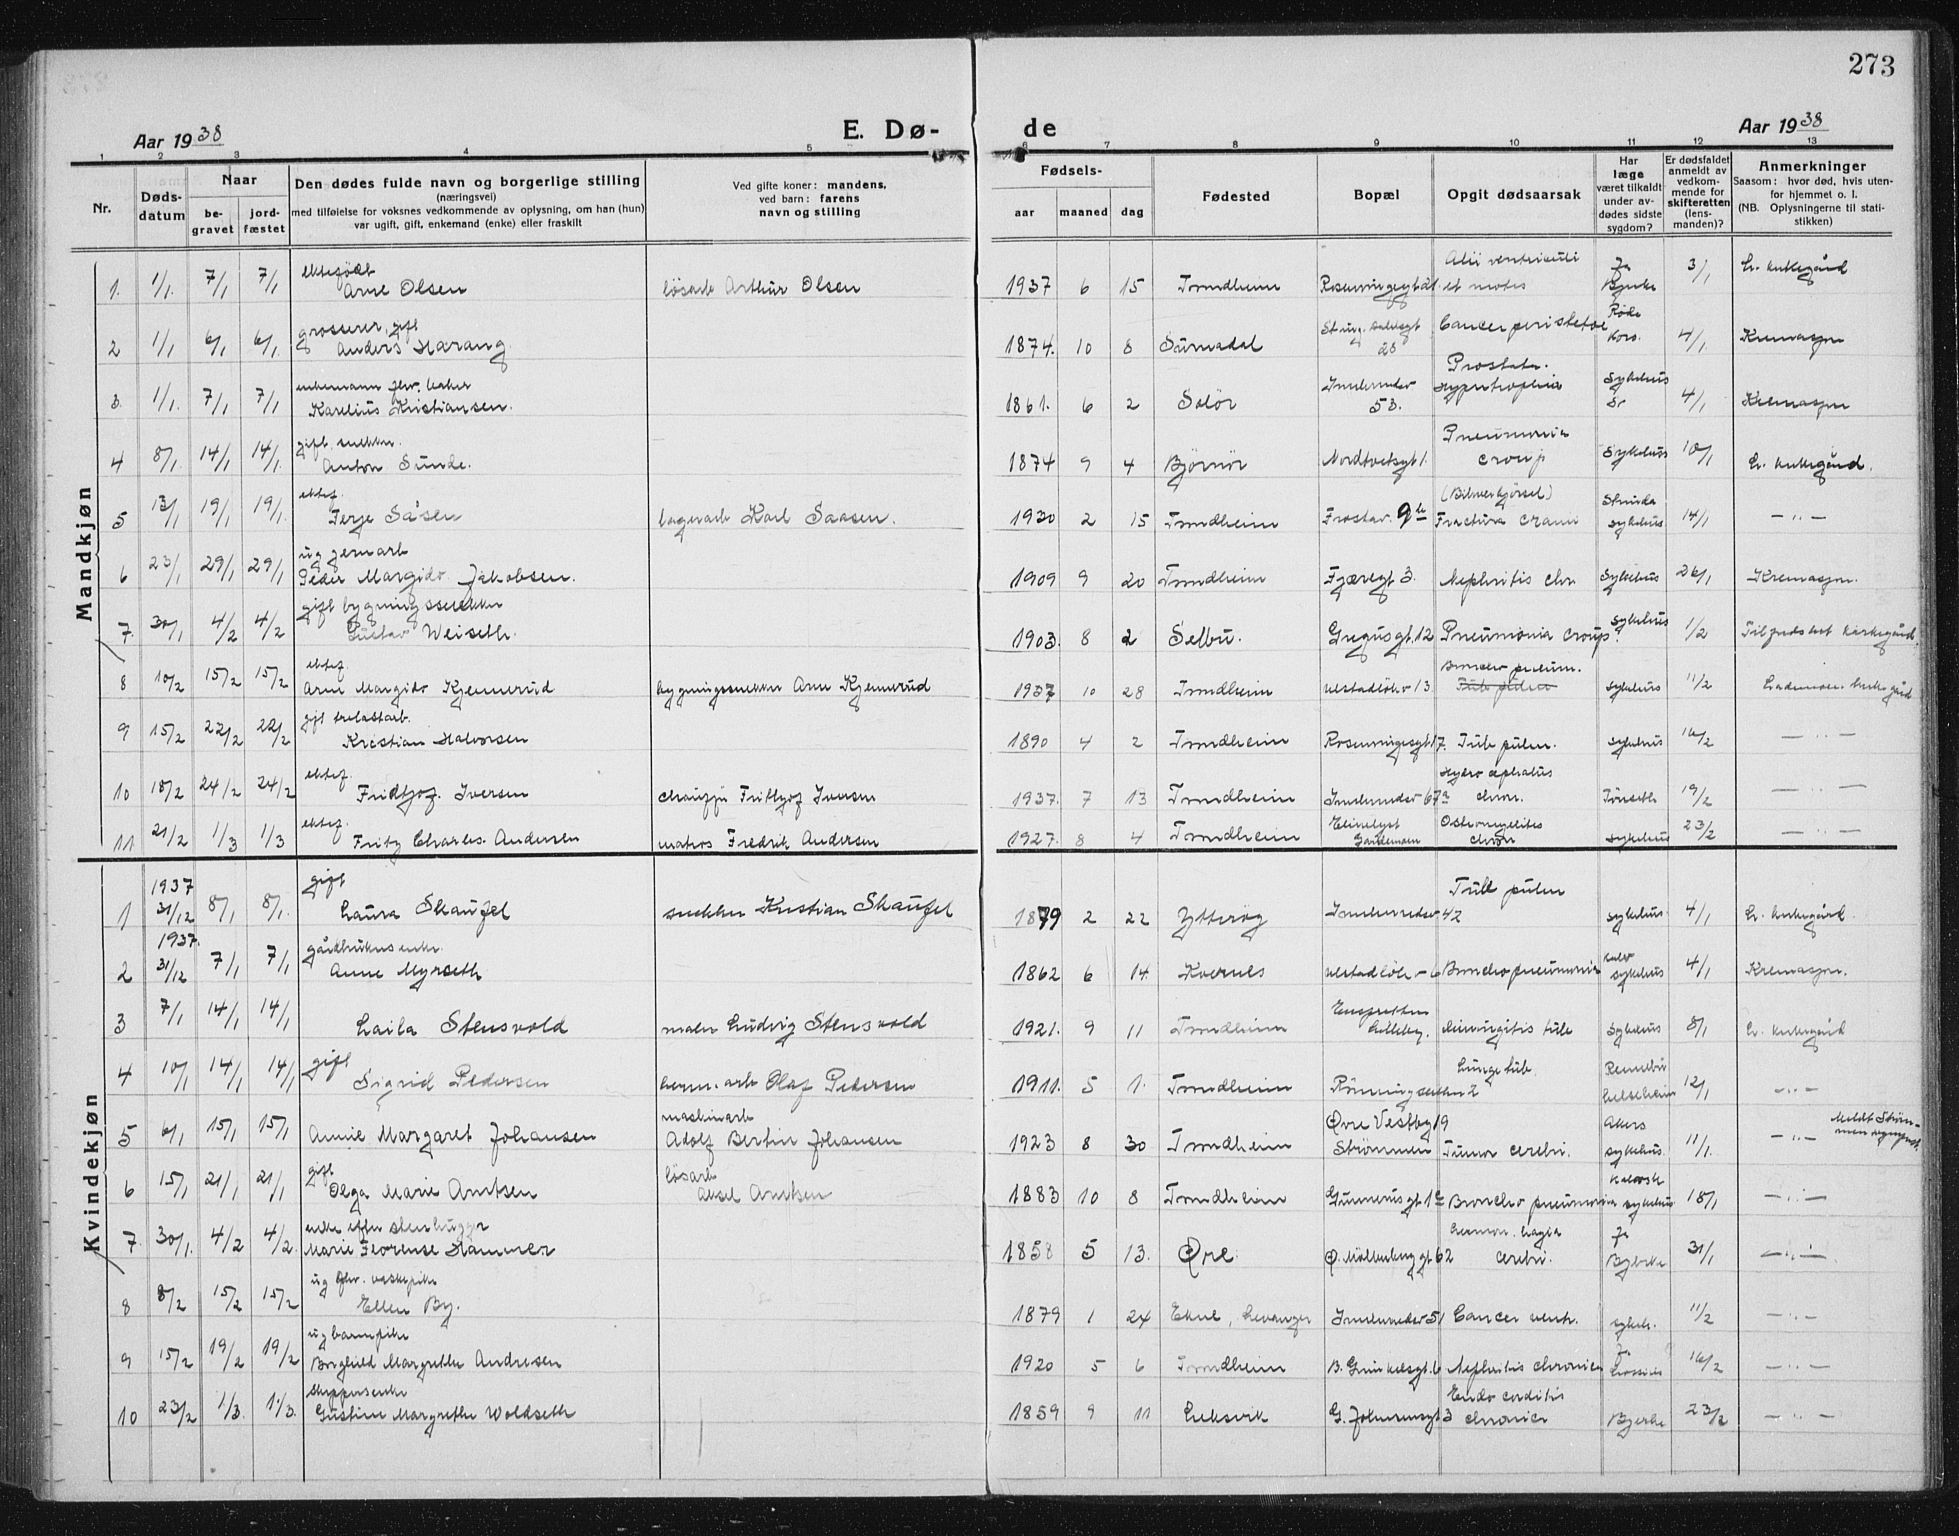 273
Aar 1938 E. Dø- de Aar 1938
1 2 3 4 5 6 7 8 9 10 11 12 13
Nr.
Døds-
datum
Naar
be-
gravet
jord-
fæstet
Den dødes fulde navn og borgerlige stilling
(næringsvei)
med tilføielse for voksnes vedkommende av oplysning, om han (hun)
var ugift, gift, enkemand (enke) eller fraskilt
Ved gifte koner: mandens,
ved barn: farens
navn og stilling
Fødsels-
aar maaned dag
Fødested
Bopæl
Opgit dødsaarsak
Har
læge
været tilkaldt
under av-
dødes sidste
sygdom?
Er dødsfaldet
anmeldt av
vedkom-
mende for
skifteretten
(lens-
manden)?
Anmerkninger
Saasom: hvor død, hvis uten-
for hjemmet o. l.
(NB. Oplysningerne til stati-
stikken)
Mandkjøn
1. 1/1. 7/1 7/1 ektefødt
Arne Olsen løsarb Arthur Olsen 1937 6 15 Trondheim et motos Bjerke 3/1
2 1/1 6/1 6/1 grosserer, gift
Anders Harang 1874. 10 8 Surnadal 28 Røde Kors. 4/1 Kremasjon
3. 1/1. 7/1 7/1
Karelius Kristiansen. 1861. 6 2 Solør 53. Prostata-
hypertrophia Sykehus 4/1 Kremasjon
4 8/1. 14/1 14/1. gift snekker.
Anton Sunde. 1874 9 4 Bjørnør Pneumonia
croup Sykehus 10/1
5 13/1 19/1 19/1. ektef.
Terje Såsen lagerarb Karl Saasen. 1930 2 15 Trondheim (Bilverkjørsel)
Fractura cranii Strinda
sykehus 14/1 — „ —
6 23/1 29/1 29/1 ug jernarb
Peder Margido Jakobsen. 1909 9 20 Trondheim Fjæregt 3. Nephritis chr. Sykehus 26/1 Kremasjon.
7. 30/1 4/2 4/2 gift bygningssnekker
Gustav Weiseth. 1903. 8 2 Selbu. Gregusgt. 12 Pneumonia croup sykehus 1/2
8 10/2 15/2 15/2 ektef.
Arne Margido Kjennerud bygningssnekker Arne Kjennerud 1937 10 28 Trondheim Broncho pneum.
Tub pulm sykehus 11/2
9 15/2 22/2 22/2
Kristian Halvorsen 1890 4 2 Trondheim Tub pulm. sykehus 16/2 — „ —
10 18/2 24/2 24/2 ektef.
Fridtjof Iversen chauffør Fridtjof Iversen 1937. 7 13 Trondheim Hydrocephalus
chron. Tønseth 19/2 — „ —
11 21/2 1/3 1/3 ektef.
Fritz Charles Andersen matros Fredrik Andersen 1927. 8 4 Trondheim Osteomyelites
chron sykehus 23/2 — „ —
Kvindekjøn
1 1937
31/12 8/1 8/1. gift
Laura Skaufel snekker Kristian Skaufel 1879 2 22 Ytterøy 42 Tub pulm sykehus 4/1
2 1937.
31/12 7/1 7/1 gårdbrukerenke.
Anne Myrseth 1862 6 14 Kvernes Broncho pneumonia sykehus 4/1 Kremasjon.
3 7/1 14/1 14/1
Laila Stensvold maler Ludvig Stensvold 1921. 9 11 Trondheim Lilleby. Meningitis tub Sykehus 8/1
4 10/1 14/1 14/1 gift
Sigrid Pedersen herm. arb Olaf Pedersen 1911. 5 1. Trondheim Lungetub. helseheim 12/1 — „ —
5 6/1 15/1 15/1.
Annie Margaret Johansen maskinarb
Adolf Bertin Johansen 1923 8 30 Trondheim Øvre Vestbyg 19
Strømmen Tumor cerebri. Akers
sykehus. 11/1. — „ — Meldt Strøm-
6 15/1 21/1 21/1 gift
Olga Marie Arntsen løsarb
Aksel Arntsen 1883 10 8 Trondheim Gunnerusgt. Broncho pneumonia sykehus 18/1 — „ —
7. 30/1. 4/2 4/2. enke efter stenhugger
Marie Florense Hammer 1858 5 13. Øre Ø. Møllenberggt 62 cerebri. Ja
Bjerke 31/1 — „ —
8 8/2 15/2 15/2 ug fhv. vaskepike
Ellen By. 1879 1 24 Ekne, Levanger Innherredsv 51 Cancer ventr. sykeh. 11/2 — „ —
9 15/2 19/2 19/2 ug barnepike
Borghild Margrethe Andresen 1920 5 6 Trondheim Nephritis chronica Ja 16/2 — „ —
10 23/2 1/3. 1/3. skippersenke
Gustine Margrethe Woldseth 1859 9 11 Leksvik G. Johnsensgt 3 Endocarditis
chronica Bjerke 23/2 — „ —